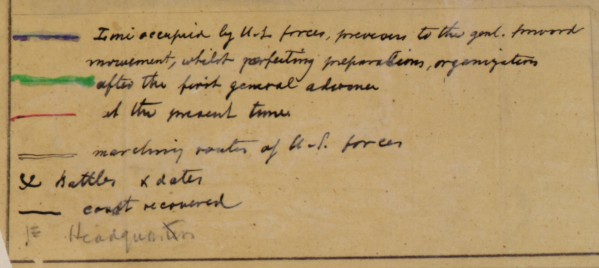 Line occupied by U.S. forces, previous to the genl. forward
movement, whilst perfecting preparations, organization
after the first general advance
at the present time
marching routes of U.S. forces
Battles & dates
coast recovered
Headquarters